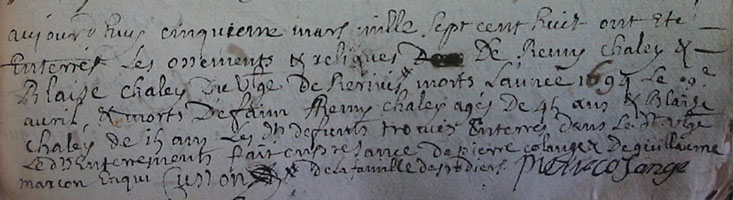 aujourd'huy cinquieme mars mille sept cent huit ont ete
Enterrés Les ossements & reliques De Remy chaley &
Blaise chaley Du Vlge de morts L'année 1694 Le 09e
avril & morts De faim Remy chaley agés De 45 ans & Blaise
chaley de 15 ans Les dts defunts trouvés Enterrés dans Le dt Vlge
Le dt Enterrement fait en presance de pierre colange & De guillaume
marcon Enqui De la famille des Pierre colange